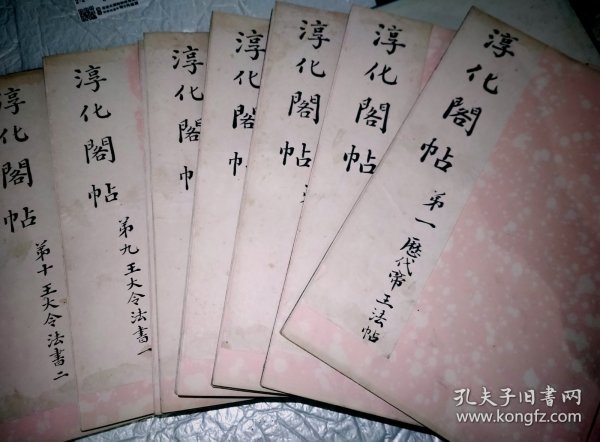 淳化閣帖
第一歷代帝王法帖
淳化閣帖
淳化閣帖
淳化閣帖
淳化閣帖
淳化閣帖
第九王大令法書一
淳化閣帖
第十王大令法書二
孔夫子旧书网
www.kongfz.com